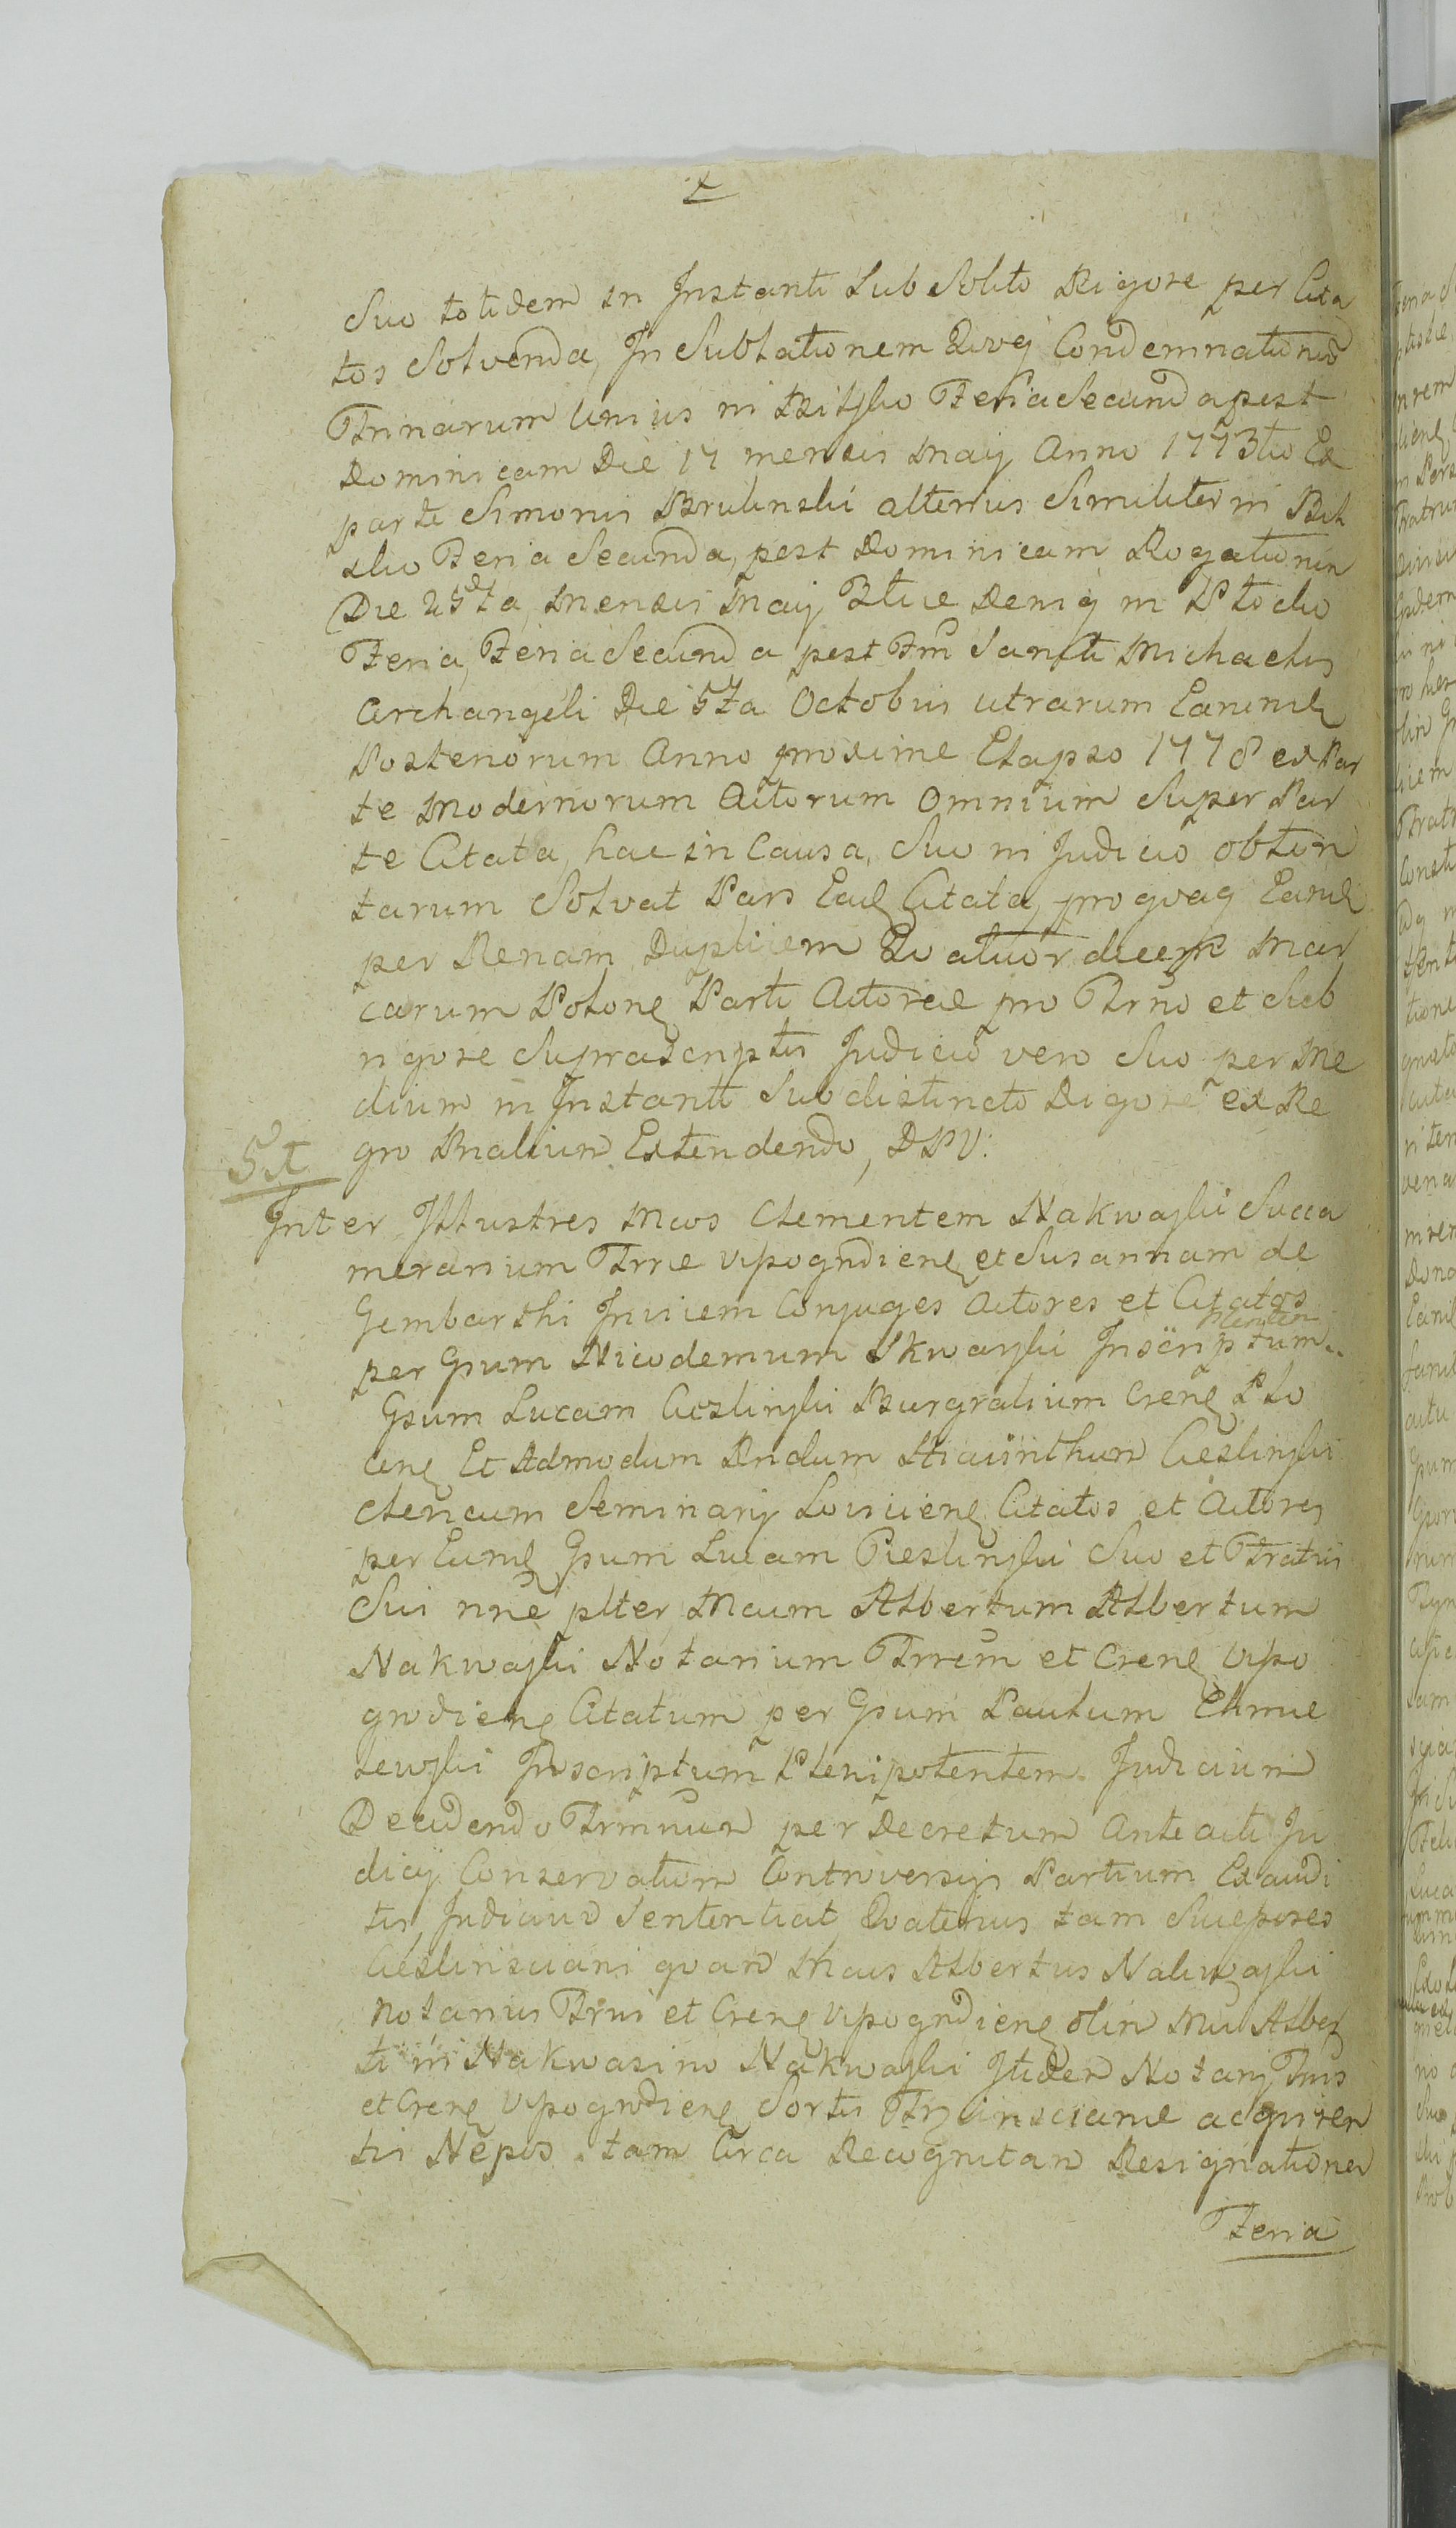 Suo totidem in Instanti sub Solito Rigore per Cita
tos Solvenda, In Sublationem Quoq Condemnationū
Trinarum Unius in Feria Secunda post
Dominicam Die 17 mensis Maij Anno 1773tio Ex
parte Simonis Brulinski alterius Similiter in Biel
sko Feria Secunda, post Dominicam Rogationū
Die 25ta Mensis Maij Deniq in Plocko
Feria, Feria Secunda post Fm Sancti Michaelis
Archangeli Die 5ta Octobris utrarum Earund
Posteriorum Anno proxime Elapso 1778 ex Par
te Modernorum Actorum Omnium Super Par
te Citata, hac in Causa, Suo in Judicio obten
tarum Solvat Pars Ead Citata, pro qvaq Eand
per Penam Duplicem Qvatuordecem Mar
carum Polong Parti Actorea pro Trno et Sub
rigore Suprascriptis Judicio vero Suo per Me
dium in Instanti Sub distincto Rigore ex Re
gro Malium Extendendo, DPV:
5t
Inter Illustres Mcos Clementem Nakwaski Succa
merarium Trrae Vyssogrodieng et Susannam de
Gembarthi Invicem Conjuges Actores et Citatos
per Gsum Nicodemum Skwarski Inscriptum Pleniten
Gsum Lucam Cieslinski Burgrabium Creng Plo
ceng Et Admodum Rndum Hiacinthum Cieslinski
Clericum Seminarij Lovicieng Citatos et Actores
per Eund Gsum Lucam Cieslinski Suo et Fratris
Sui nne plter, Mcum Albertum Albertum
Nakwaski Notarium Trrem et Creng Vyso
grodieng Citatum per Gsum Paulum Chmie
lewski Inscriptum Plenipotentem. Judicium
Decidendo Trminum per Decretum Anteacti Ju
dicij Conservatum Controversijs Partium Exaudi
tis, Judicium Sententiat Qvatenus tam Succesores
Cieslinsciani qvam Mcus Albertus Nakwaski
Notarius Trris et Creng Vysogrodieng olim Mci Alber
ti in Nakwasino Nakwaski Itidem Notarij Trris
et Creng Vysogrodieng Sortis acqviren
tis Nepos. tam Circa Recognitam Resignationem
Feria